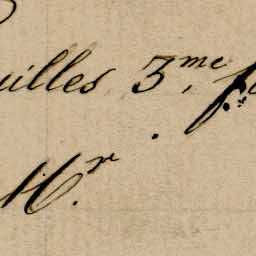 uilles 3.me
Mr.